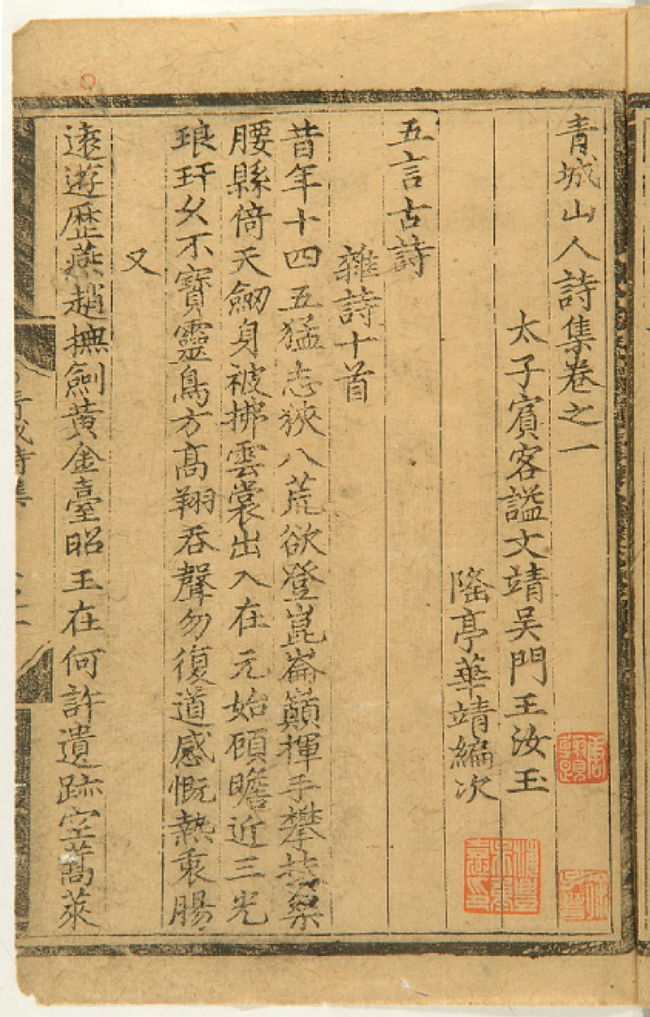 青城山人詩集卷之一
太子賓客謚文靖吳門王汝玉
隆亭華靖編次
五言古詩
雜詩十首
昔年十四五猛志狹八荒欲登崑崙巔揮手攀扶桑
腰縣倚天劒身被拂雲裳出入在元始頋瞻近三光
琅玕久不寶靈鳥方高翔吞聲勿復道感慨熱衷腸
又
遠遊歷燕趙撫劍黄金臺昭王在何許遺跡空蒿萊
青城詩集